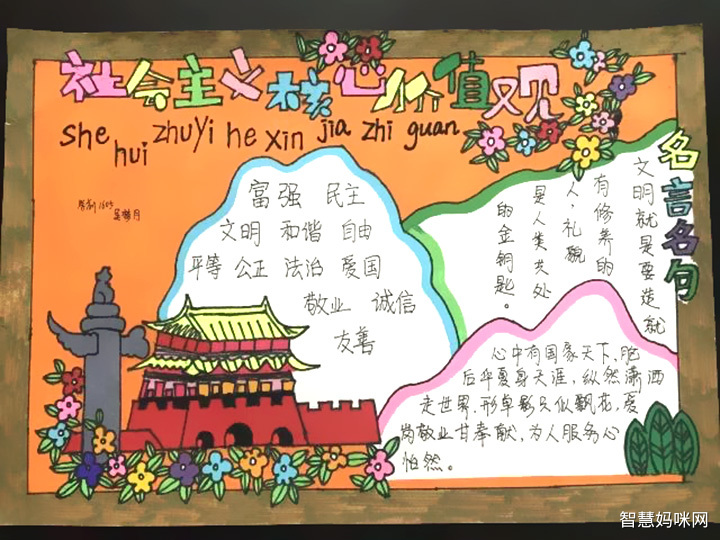 社会主义核心价值观
she hui zhuyi he xin jia zhi guan
富强 民主
文明 和谐 自由
平等 公正 法治 爱国
敬业 诚信
友善
名言名句
文明就是要造就
有修养的
人,礼貌
是人类共处
的金钥匙。
心中有国家天下,胞
后华夏身天涯,纵然潇洒
走世界,形单影只似飘花,爱
岗敬业甘奉献,为人服务心
怡然。
智慧妈咪网